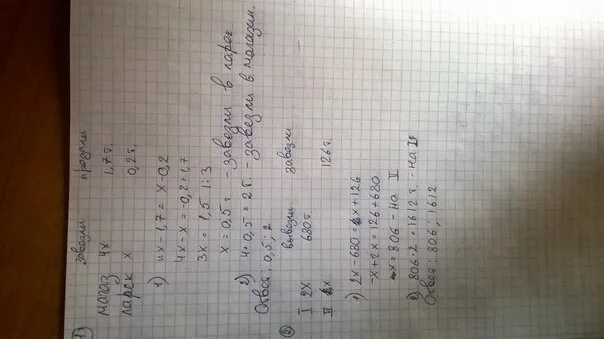 1)
завезли продали
магаз 4х 1,7т.
ларёк х 0,2т.
1) 4х-1,7=х-0,2
4х-х=-0,2+1,7
3х=1,5 |:3
х=0,5т - завезли в ларек
2) 4·0,5=2т. - завезли в магазин.
Ответ: 0,5; 2
2) вывезли завезли
I 2х 680т.
II х 126т.
1) 2х-680=х+126
-х+2х=126+680
х=806 - на II
2) 806·2=1612т. - на I
Ответ: 806; 1612